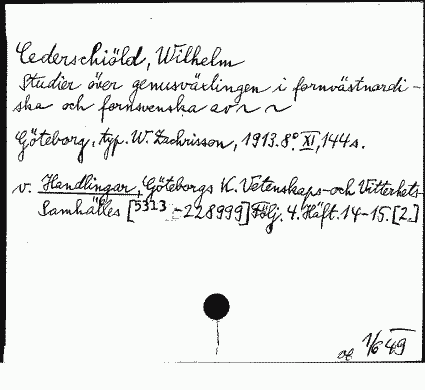 Cederschiöld, Wilhelm
Studier över genusväxlingen i fornvästnordi-
ska och fornsvenska av ~ ~
Göteborg, typ. W. Zachrisson, 1913. 8° XI, 144 s.
v. Handlingar, Göteborgs K. Vetenskaps- och Vitterhets-
Samhälles [5313 -228999] Följ. 4. Häft. 14-15. [2.]
1/6 49